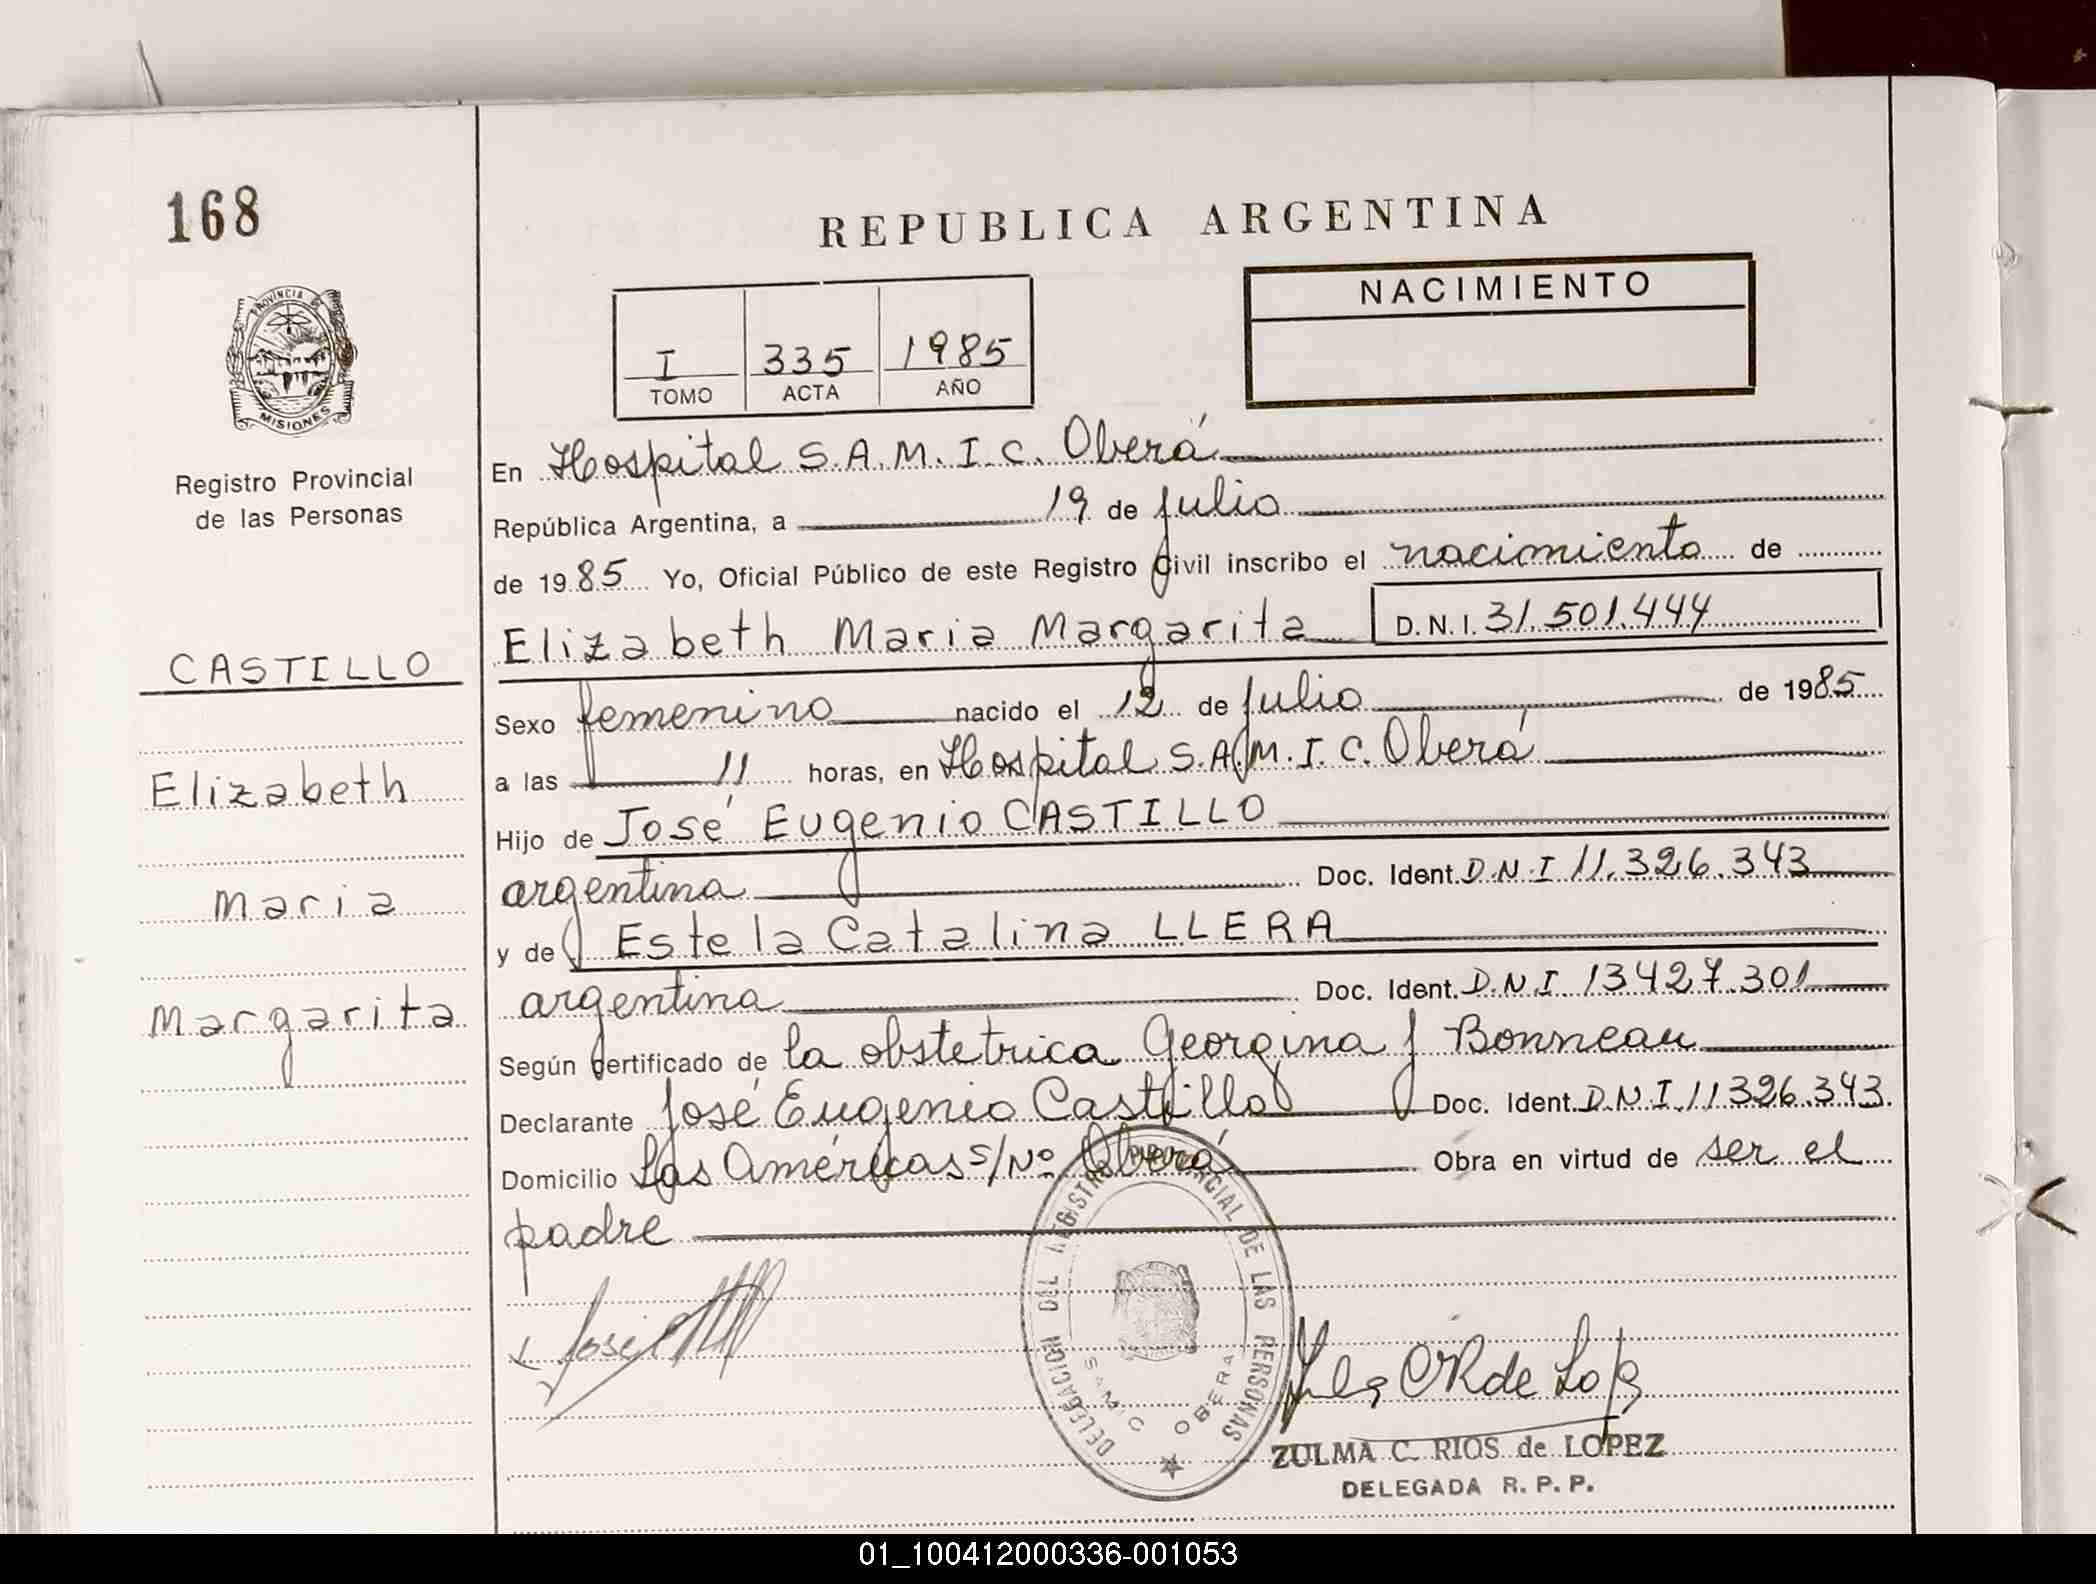 168
REPUBLICA ARGENTINA
NACIMIENTO
I 335 1985
TOMO ACTA AÑO
PROVINCIA DE
MISIONES
Registro Provincial
de las Personas
CASTILLO
Elizabeth
Maria
Margarita
En Hospital S.A.M.I.C. Oberá
República Argentina, a 19 de julio
de 1985 Yo, Oficial Público de este Registro Civil inscribo el nacimiento de
Elizabeth Maria Margarita D.N.I. 31.501.444
Sexo femenino nacido el 12 de julio de 1985
a las 11 horas, en Hospital S.A.M.I.C. Oberá
Hijo de José Eugenio CASTILLO
argentina Doc. Ident. D.N.I 11.326.343
y de Estela Catalina LLERA
argentina Doc. Ident. D.N.I. 13427.301
Según certificado de la obstetrica Georgina J Bonneau
Declarante José Eugenio Castillo Doc. Ident. D.N.I. 11326.343.
Domicilio Las Américas S/Nº Oberá Obra en virtud de ser el
padre
DELEGACION DEL REGISTRO PROVINCIAL DE LAS PERSONAS
SAMIC OBERA
José
ZULMA C. RIOS de LOPEZ
DELEGADA R. P. P.
01_100412000336-001053